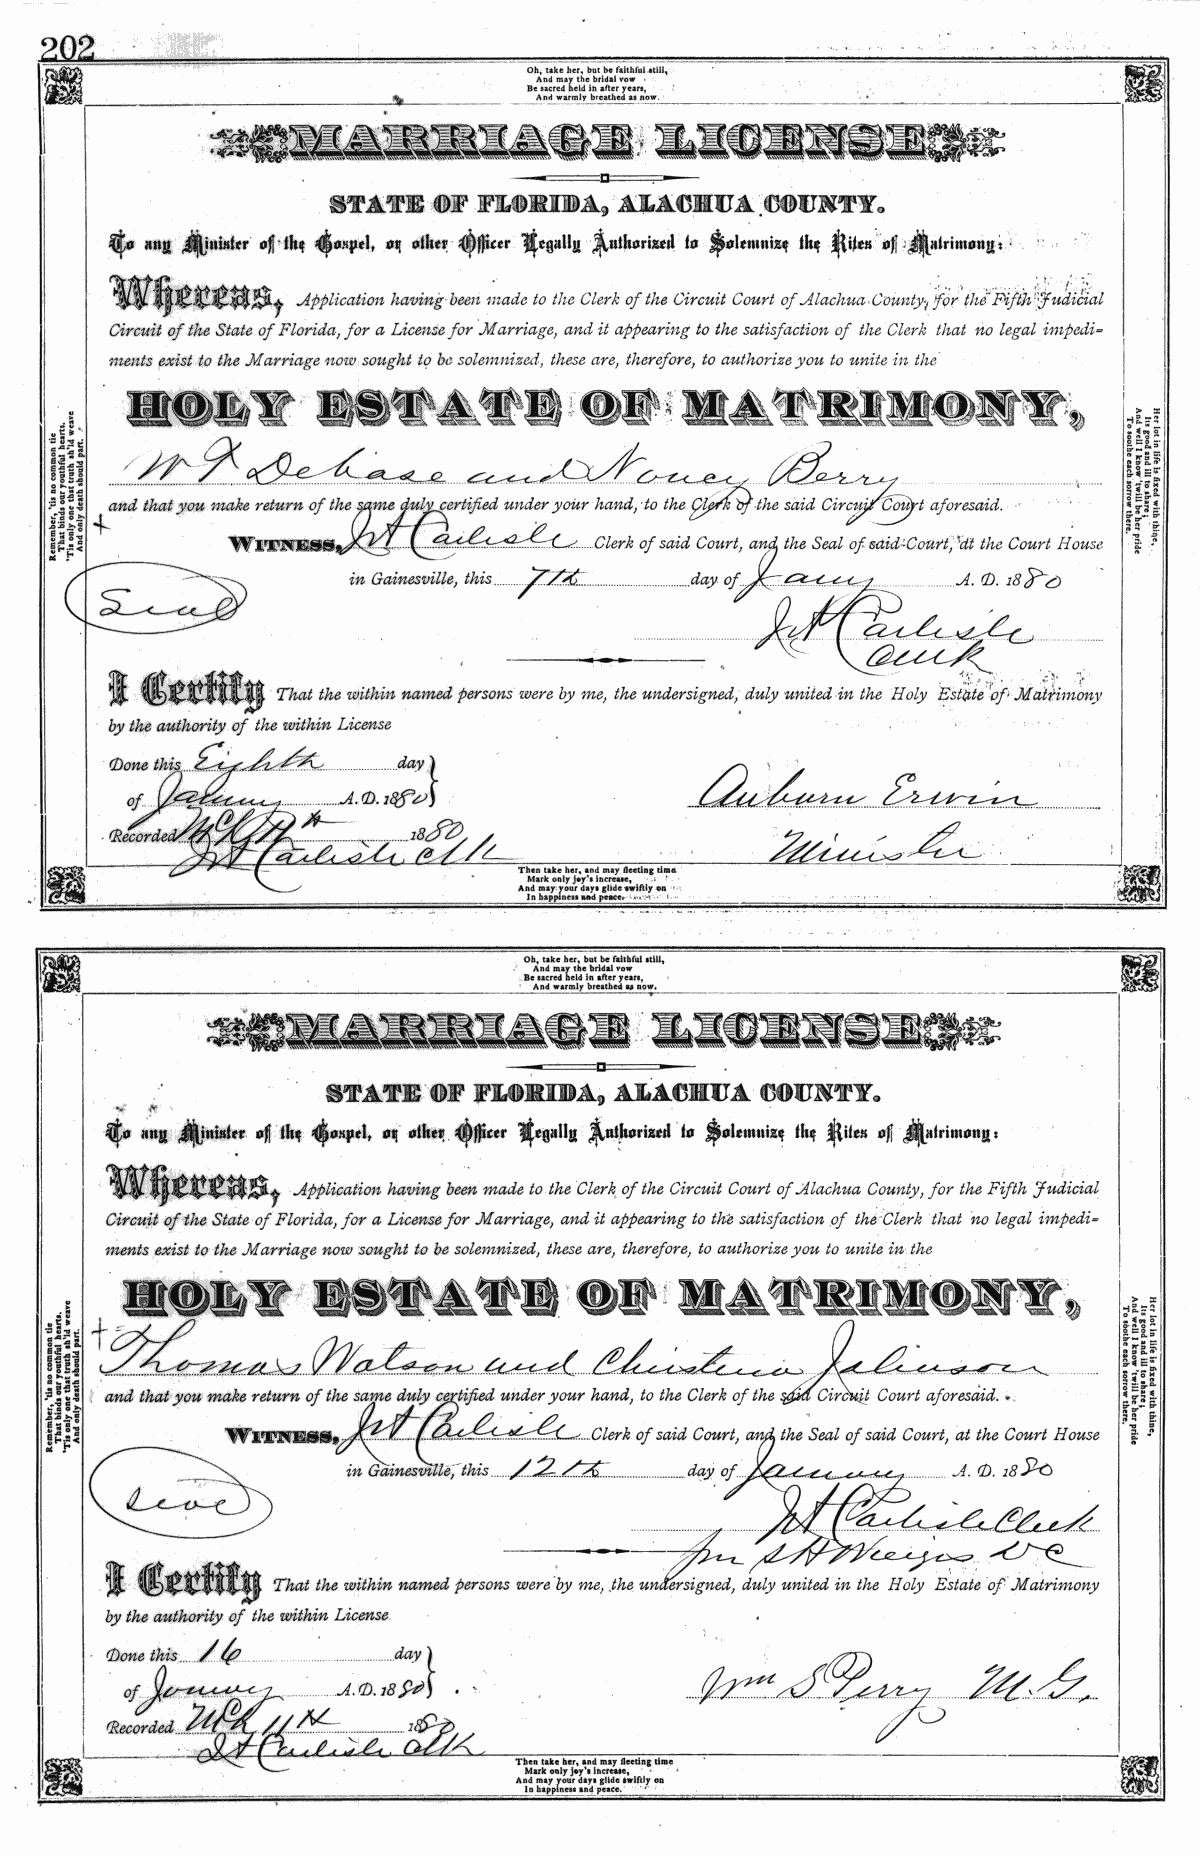 202
Oh, take her, but be faithful still,
And may the bridal vow
Be sacred held in after years,
And warmly breathed as now.
MARRIAGE LICENSE
STATE OF FLORIDA, ALACHUA COUNTY.
To any Minister of the Gospel, or other Officer Legally Authorized to Solemnize the Rites of Matrimony:
Whereas, Application having been made to the Clerk of the Circuit Court of Alachua County, for the Fifth Judicial
Circuit of the State of Florida, for a License for Marriage, and it appearing to the satisfaction of the Clerk that no legal impedi-
ments exist to the Marriage now sought to be solemnized, these are, therefore, to authorize you to unite in the
HOLY ESTATE OF MATRIMONY,
W F Debase and Nancy Berry
and that you make return of the same duly certified under your hand, to the Clerk of the said Circuit Court aforesaid.
WITNESS, J A Carlisle Clerk of said Court, and the Seal of said Court, at the Court House
in Gainesville, this 7th day of Jany A. D. 1880
Seal
J A Carlisle
Clerk
I Certify That the within named persons were by me, the undersigned, duly united in the Holy Estate of Matrimony
by the authority of the within License
Done this Eighth day
of January A. D. 1880
Auburn Erwin
Recorded Mch 11th 1880
Minister
J A Carlisle Clk
Remember, 'tis no common tie
That binds our youthful hearts.
'Tis only one that truth sh'ld weave
And only death should part.
Her lot in life is fixed with thine,
Its good and ill to share;
And well I know 'twill be her pride
To soothe each sorrow there.
Then take her, and may fleeting time
Mark only joy's increase,
And may your days glide swiftly on
In happiness and peace.
Oh, take her, but be faithful still,
And may the bridal vow
Be sacred held in after years,
And warmly breathed as now.
MARRIAGE LICENSE
STATE OF FLORIDA, ALACHUA COUNTY.
To any Minister of the Gospel, or other Officer Legally Authorized to Solemnize the Rites of Matrimony:
Whereas, Application having been made to the Clerk of the Circuit Court of Alachua County, for the Fifth Judicial
Circuit of the State of Florida, for a License for Marriage, and it appearing to the satisfaction of the Clerk that no legal impedi-
ments exist to the Marriage now sought to be solemnized, these are, therefore, to authorize you to unite in the
HOLY ESTATE OF MATRIMONY,
Thomas Watson and Christena Johnson
and that you make return of the same duly certified under your hand, to the Clerk of the said Circuit Court aforesaid.
WITNESS, J A Carlisle Clerk of said Court, and the Seal of said Court, at the Court House
in Gainesville, this 12th day of January A. D. 1880
Seal
J A Carlisle Clerk
S H DC
I Certify That the within named persons were by me, the undersigned, duly united in the Holy Estate of Matrimony
by the authority of the within License
Done this 16 day
of January A. D. 1880
Wm S Perry M. G.
Recorded Mch 11th 1880
J A Carlisle Clk
Remember, 'tis no common tie
That binds our youthful hearts.
'Tis only one that truth sh'ld weave
And only death should part.
Her lot in life is fixed with thine,
Its good and ill to share;
And well I know 'twill be her pride
To soothe each sorrow there.
Then take her, and may fleeting time
Mark only joy's increase,
And may your days glide swiftly on
In happiness and peace.